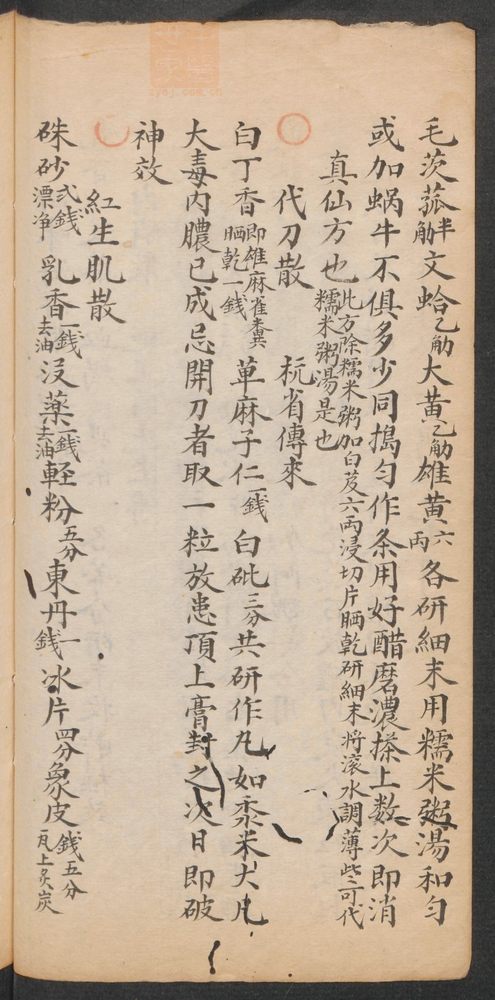 毛茨菰半觔文蛤乙觔大黃乙觔雄黃六両各研細末用糯米粥湯和匀
或加蝸牛不俱多少同搗匀作条用好醋磨濃搽上数次即消
真仙方也此方除糯米粥加白芨六两浸切片晒乾研細末將滚水調薄些可代糯米粥湯是也
代刀散 杭省傳來
白丁香即雄麻雀糞晒乾一錢草麻子仁一錢白砒三分共研作丸如黍米大凡
大毒内膿已成忌開刀者取一粒放患頂上膏封之次日即破
神效
紅生肌散
硃砂弍錢漂净乳香一錢去油没薬一錢去油軽粉五分東丹一錢冰片四分象皮錢五分瓦上炙炭